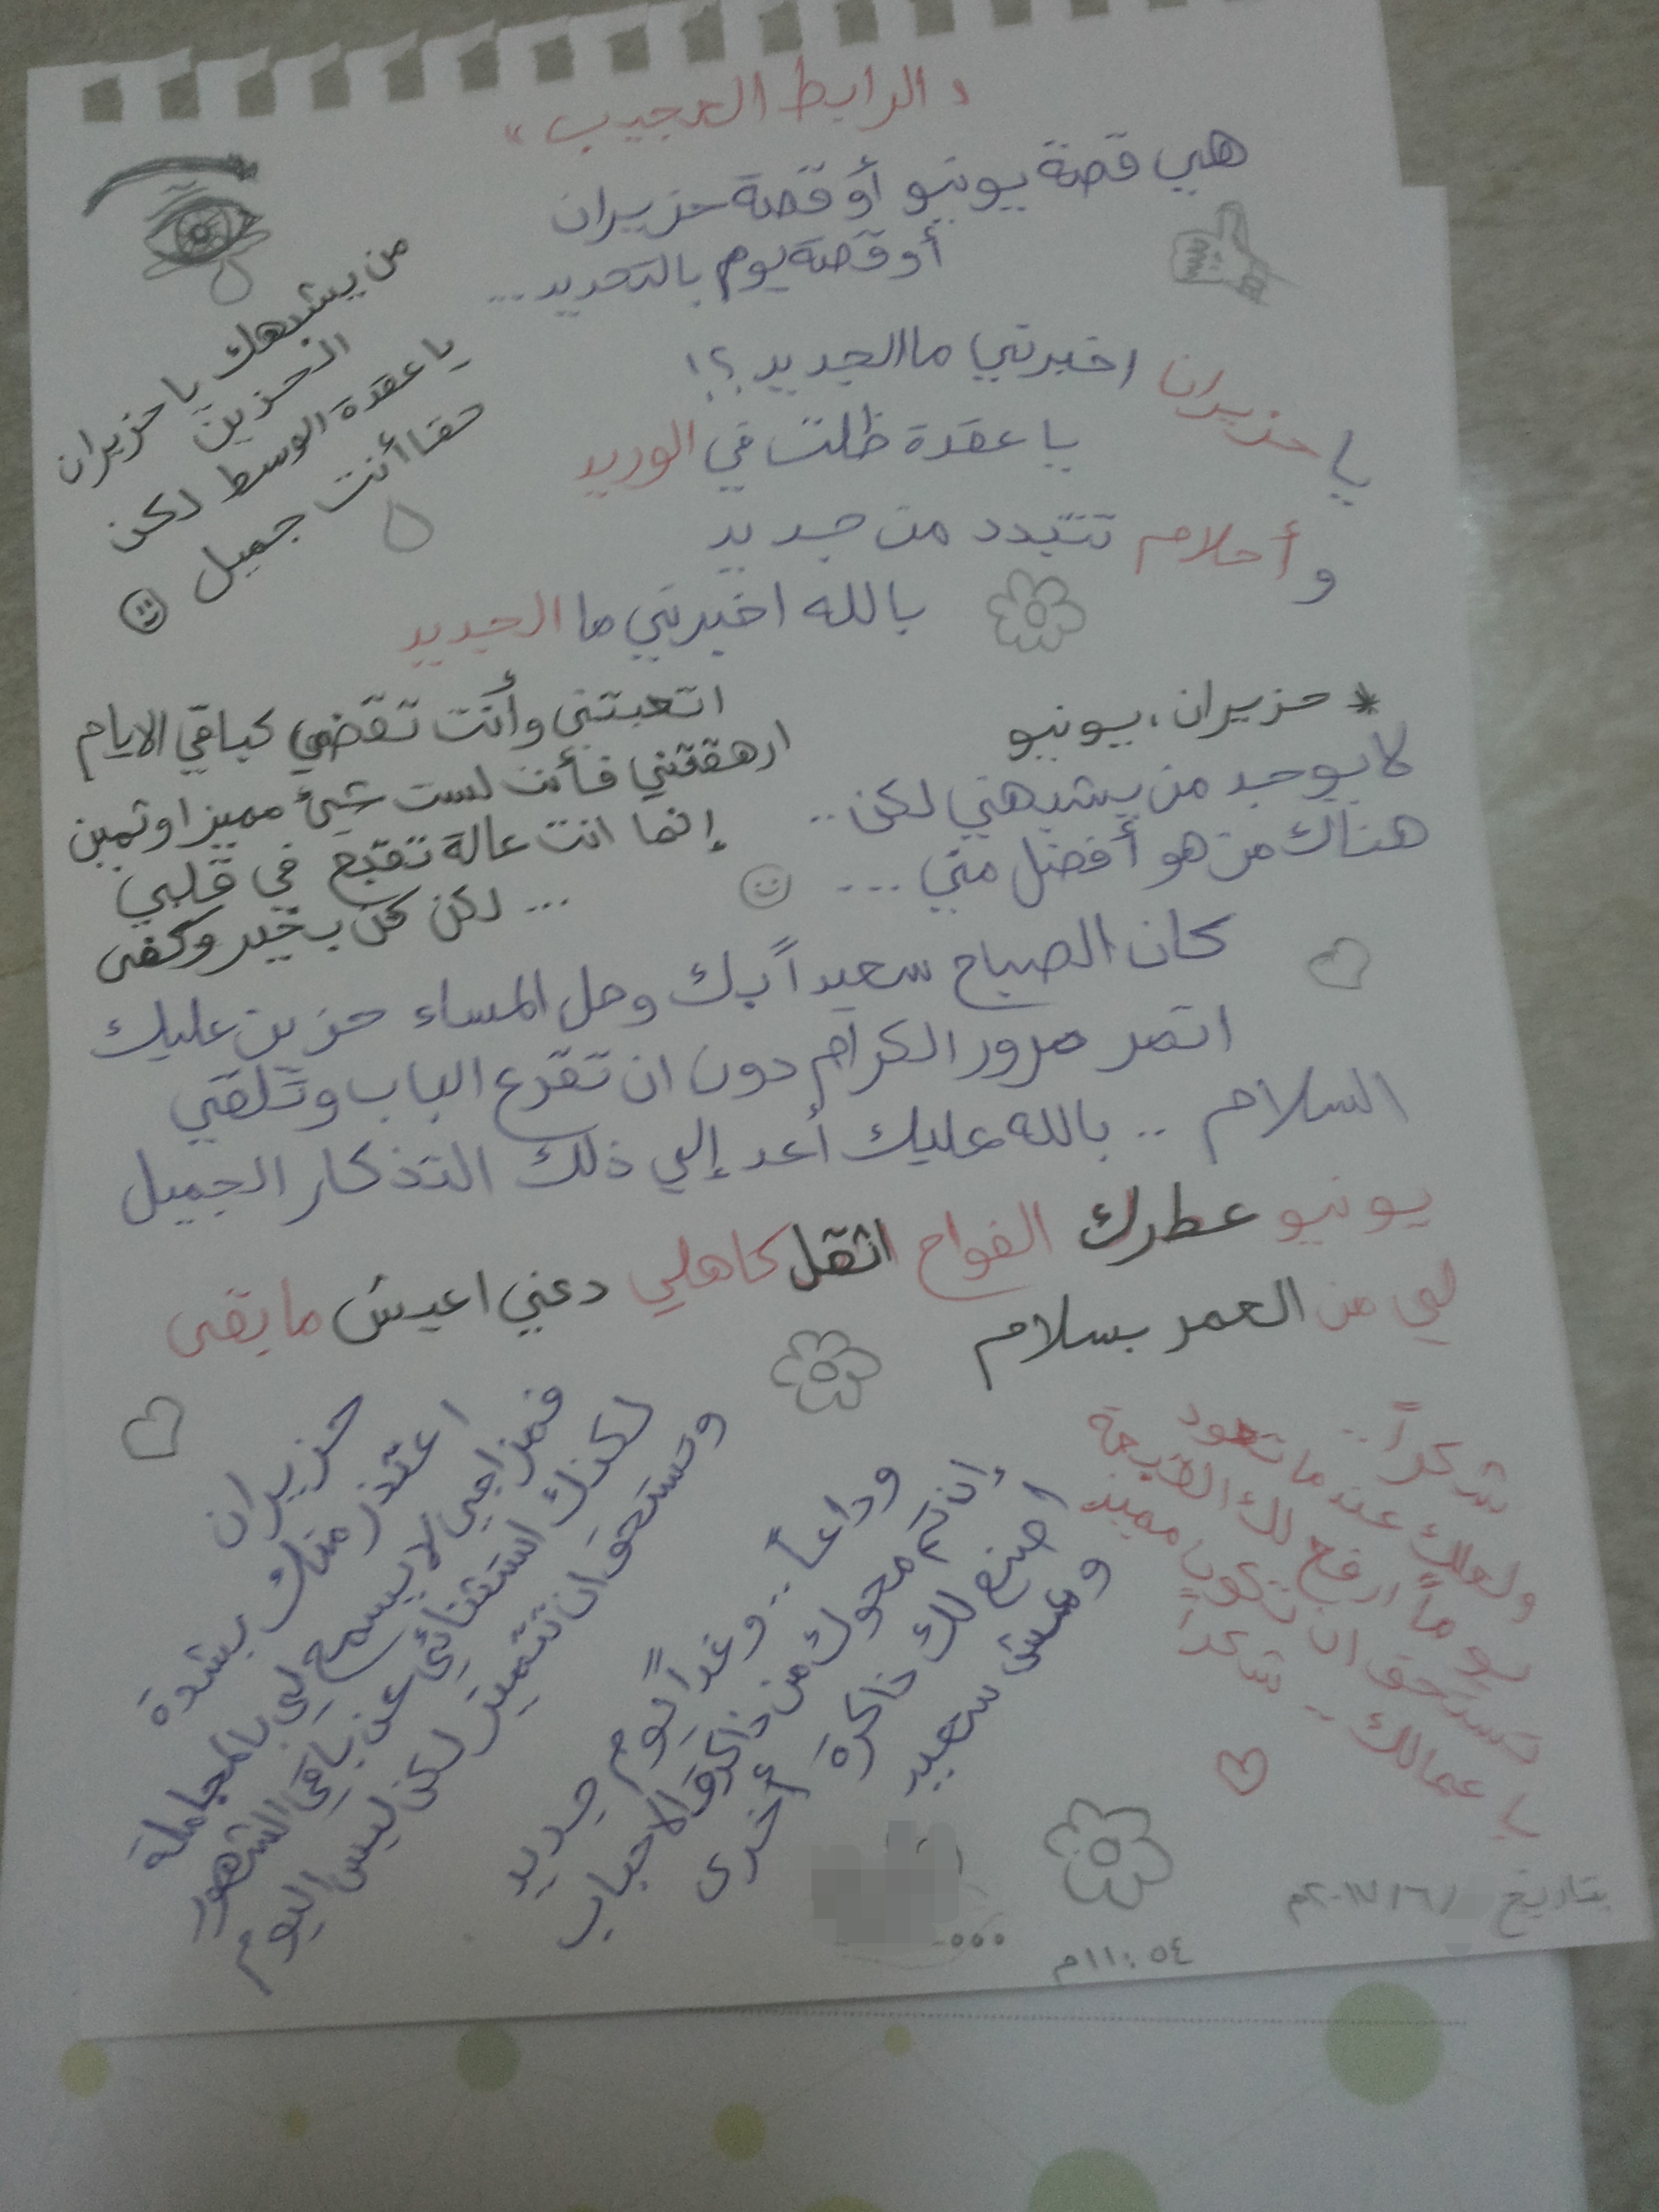 "الرابط العجيب"
هي قصة يونيو أو قصة حزيران
أو قصة يوم بالتحديد...
من يشبهك يا حزيران
الحزين
يا عقدة الوسط لكن
حقا أنت جميل
يا حزيران اخبرني ما الجديد؟!
يا عقدة ظلت في الوريد
و أحلام تتبدد من جديد
بالله اخبرني ما الجديد
* حزيران، يونيو
لا يوجد من يشبهني لكن..
هناك من هو أفضل مني ...
اتعبتني وأنت تقضي كباقي الايام
ارهقتني فأنت لست شيئ مميز او ثمين
إنما انت عالة تقبع في قلبي
... لكن كن بخير وكفى
كان الصباح سعيداً بك وحل المساء حزين عليك
اتمر مرور الكرام دون ان تقرع الباب وتلقي
السلام .. بالله عليك أعد إلي ذلك التذكار الجميل
يونيو عطرك الفواح اثقل كاهلي دعني اعيش ما بقى
لي من العمر بسلام
شكراً ..
ولعلك عندما تعود
يوماً ارفع لك القبعة
تستحق ان تكون مميز
يا عمالك .. شكراً
وداعاً .. وغداً يوم جديد
إن تم محوك من ذاكرة الاحباب
اصنع لك ذاكرة أخرى
وعش سعيد
حزيران
اعتذر منك بشدة
فمزاجي لا يسمح لي بالمجاملة
لكنك استثنائي عن باقي الشهور
وتستحق ان تتميز لكن ليس اليوم
بتاريخ /٦/٢٠١٧م
١١:٥٤م